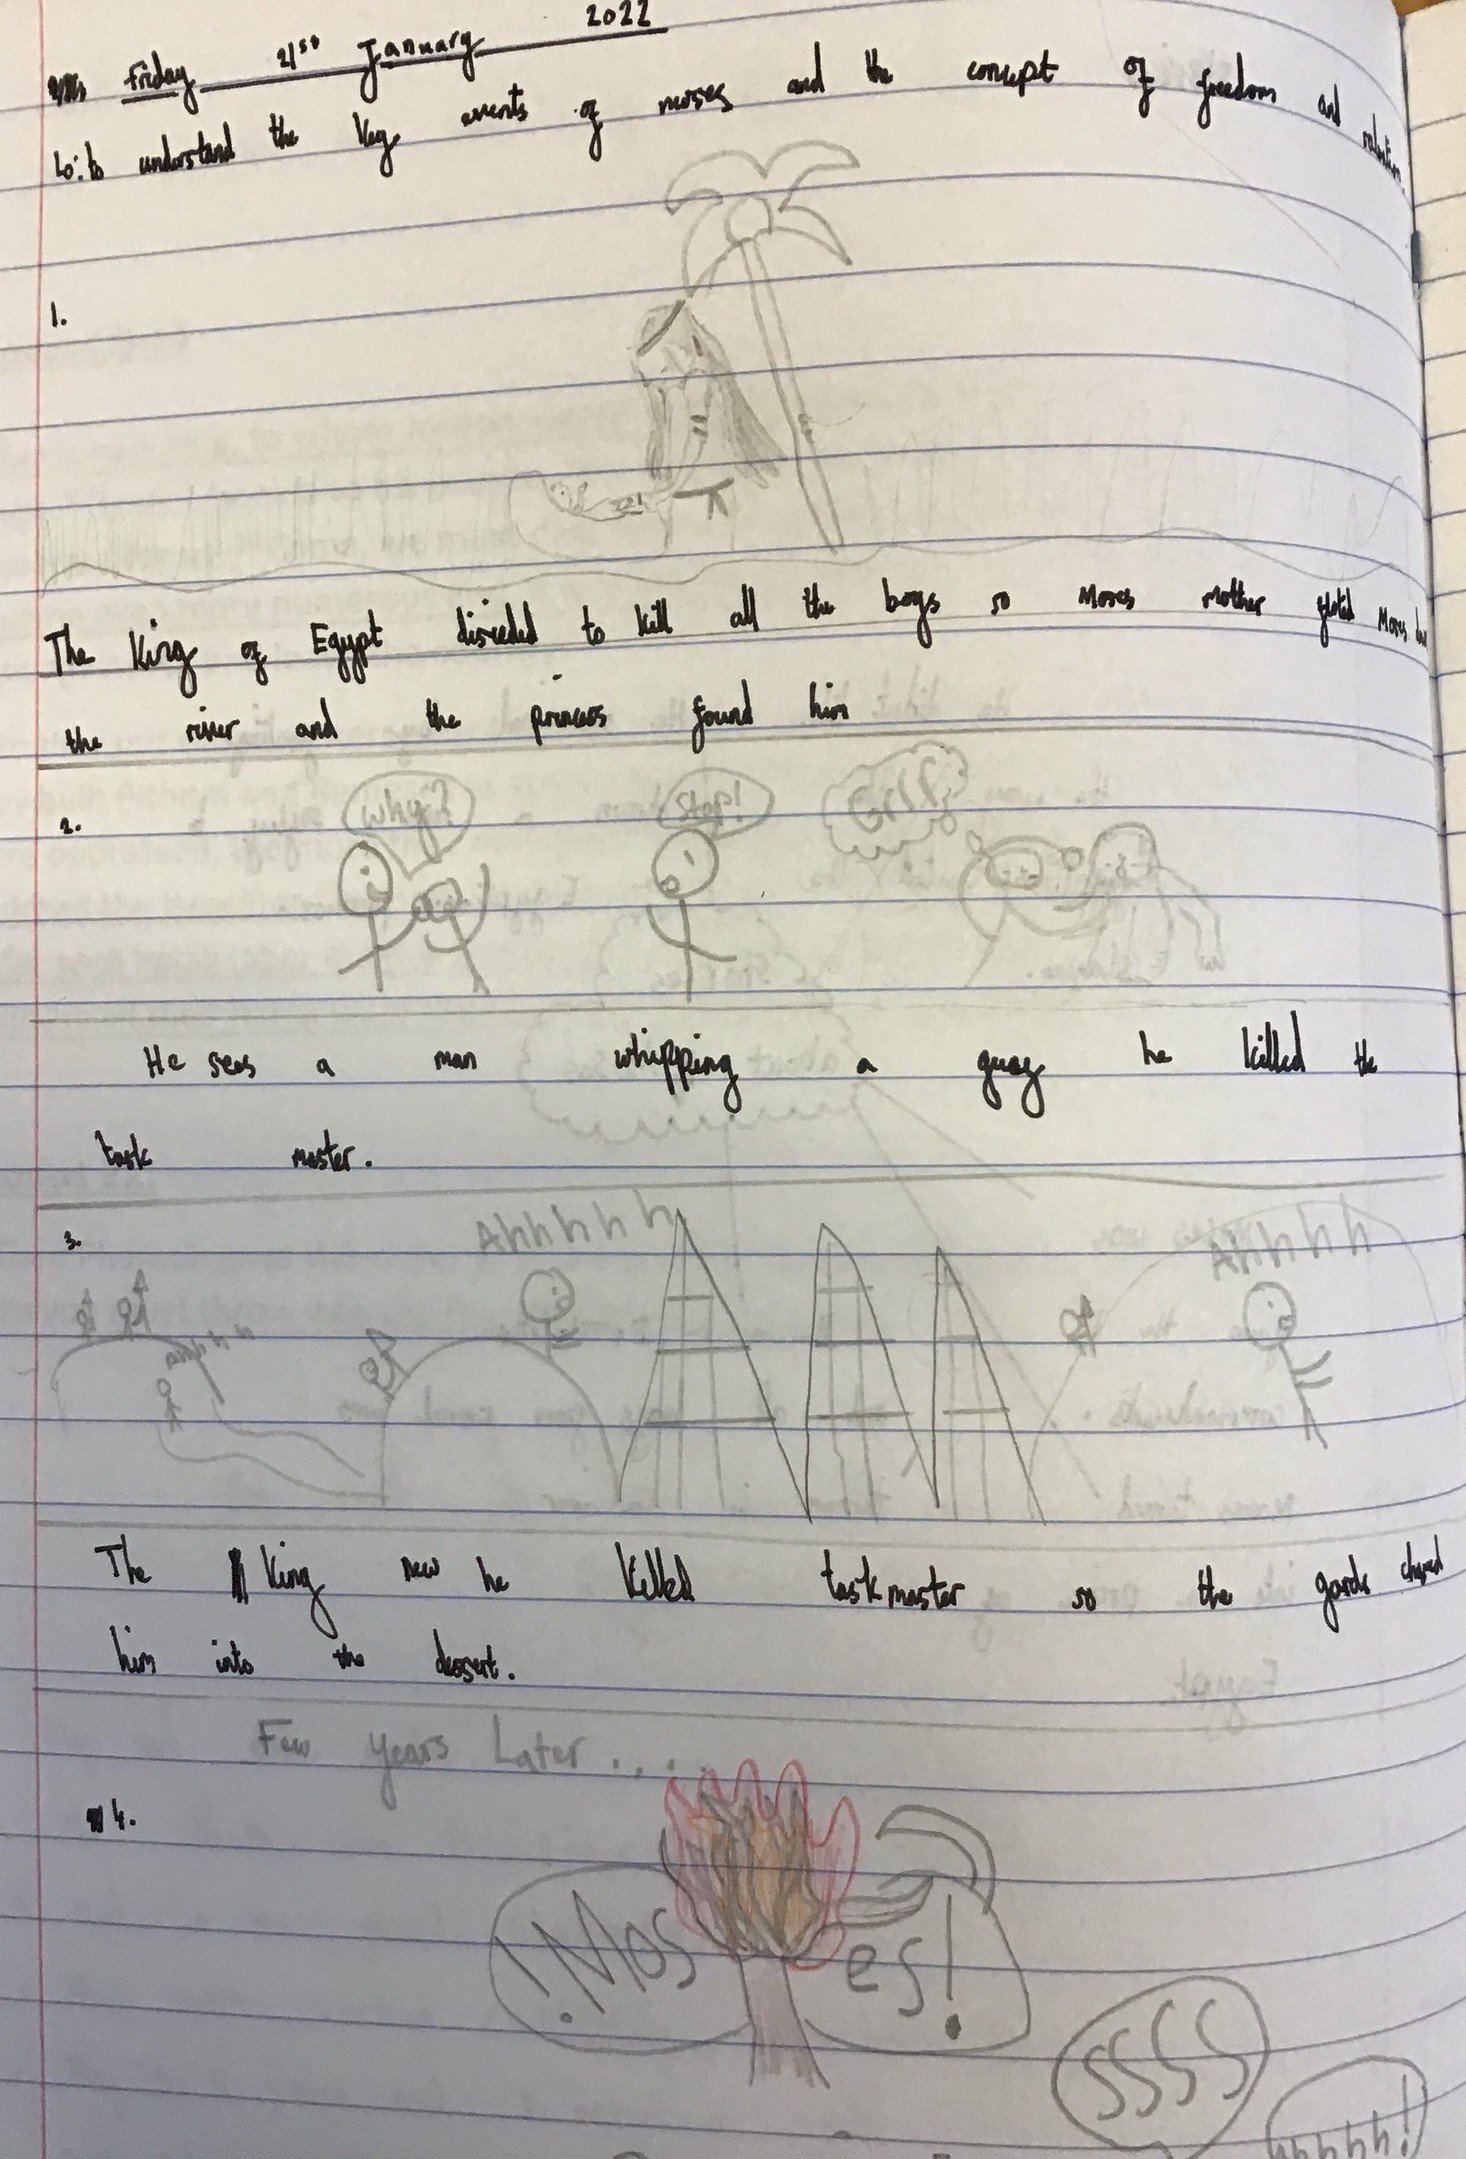 Friday 21st January 2022
Lo: to understand the key events of moses and the concept of freedom and
1.
The King of Egypt diseded to kill all the boys so Moses mother Moses
the river and the princess found him
2.
Why?
Stop!
He sees a man whipping a guay he killed the
task master.
3.
Ahhhhh
Ahhhhh
The King new he killed taskmaster so the gards chased
him into the desert.
Few Years Later....
4.
!Moses!
SSSS
hhhhh!